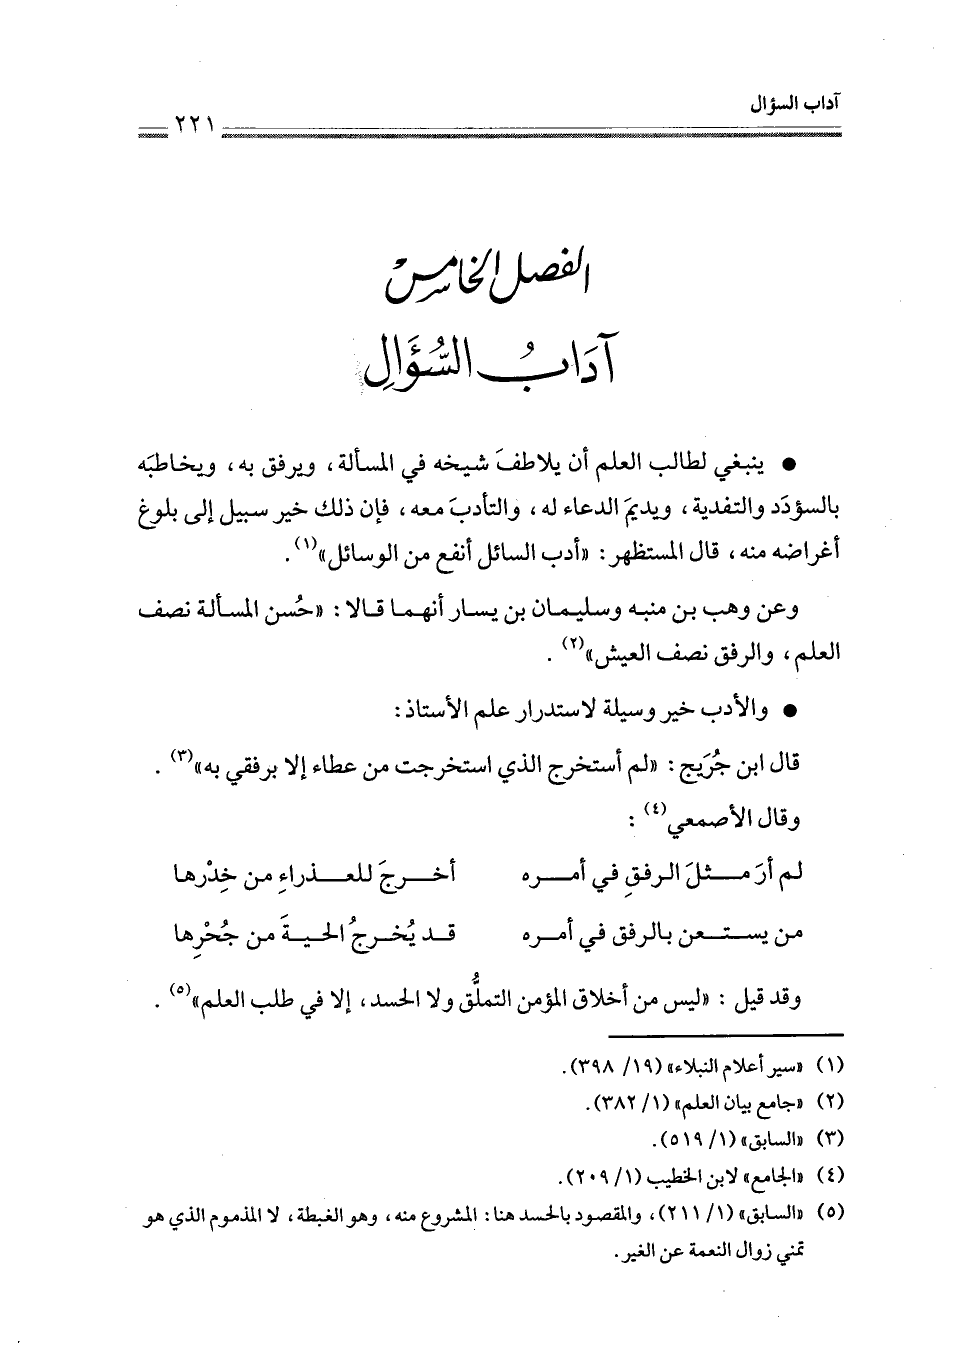 آداب السؤال
٢٢١
الفصل الخامس
آدَابُ السُّؤَالِ
● ينبغي لطالب العلم أن يلاطفَ شيخه في المسألة، ويرفق به، ويخاطبَه
بالسؤدَد والتفدية، ويديمَ الدعاء له، والتأدبَ معه، فإن ذلك خير سبيل إلى بلوغ
أغراضه منه، قال المستظهر: «أدب السائل أنفع من الوسائل»(١).
وعن وهب بن منبه وسليمان بن يسار أنهما قالا: «حُسن المسألة نصف
العلم، والرفق نصف العيش»(٢).
● والأدب خير وسيلة لاستدرار علم الأستاذ:
قال ابن جُرَيج: «لم أستخرج الذي استخرجت من عطاء إلا برفقي به»(٣).
وقال الأصمعي(٤):
لم أرَ مثلَ الرفقِ في أمره أخرجَ للعذراءِ من خِدْرِها
من يستعن بالرفق في أمره قد يُخرجُ الحيةَ من جُحْرِها
وقد قيل: «ليس من أخلاق المؤمن التملُّق ولا الحسد، إلا في طلب العلم»(٥).
(١) «سير أعلام النبلاء» (١٩/ ٣٩٨).
(٢) «جامع بيان العلم» (١/ ٣٨٢).
(٣) «السابق» (١/ ٥١٩).
(٤) «الجامع» لابن الخطيب (١/ ٢٠٩).
(٥) «السابق» (١/ ٢١١)، والمقصود بالحسد هنا: المشروع منه، وهو الغبطة، لا المذموم الذي هو
تمني زوال النعمة عن الغير.